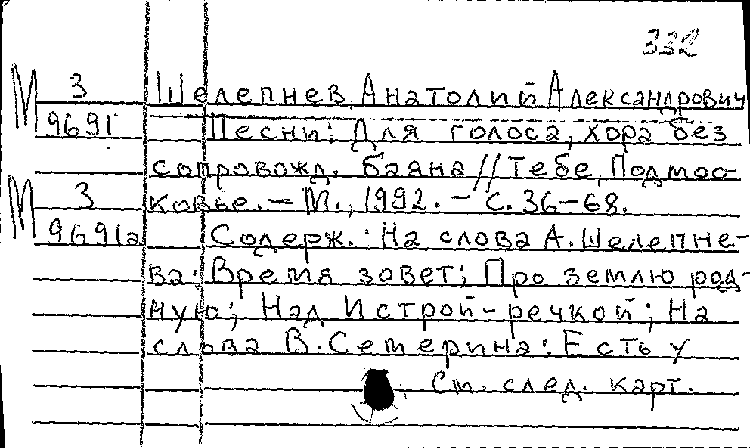 332
М 3 Шелепнев, Анатолий Александрович
9691 Песни: Для голоса, хора без
сопровожд. баяна // Тебе, Подмос-
М 3 ковье. – М., 1992. – С. 36–68.
9691а Содерж.: На слова А. Шелепне-
ва: Время зовет; Про землю род-
ную; Над Истрой-речкой; На
слова В. Семерина: Есть у
См. след. карт.